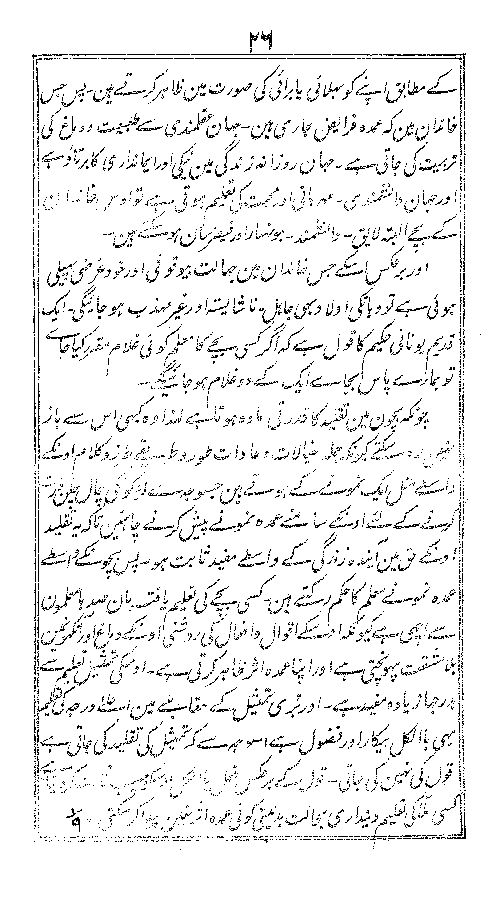 ۲۶
کے مطابق اپنے کو بھلائی یا برائی کی صورت مین ظاہر کرتے ہین۔ پس جس
خاندان مین کہ عمدہ فرائض جاری ہین۔ جہان عقلمندی سے طبیعت و دماغ کی
تربیت کی جاتی ہے۔ جہان روزانہ زندگی مین نیکی اور ایمانداری کا برتاو ہے
اور جہان دانشمندی۔ مہربانی اور محبت کی تعلیم ہوتی ہے تو اوس خاندان
کے بچے البتہ لایق۔ دانشمند۔ ہونہار اور فیضرسان ہونگے۔
اور برعکس اسکے جس خاندان مین جہالت بیوقوفی اور خود غرضی پھیلی
ہوئی ہے تو وہانکی اولاد بھی جاہل۔ ناشایستہ اور غیر مہذب ہو جائیگی۔ ایک
قدیم یونانی حکیم کا قول ہے کہ اگر کسی بچے کا معلم کوئی غلام مقرر کیا جاے
تو تمہارے پاس بجاے ایک کے دو غلام ہو جائینگے۔
چونکہ بچون مین تقلید کا قدرتی مادہ ہوتا ہے لہذا وہ کبھی اس سے باز
نہین رہ سکتے کیونکہ جملہ خیالات و عادات طور و طریقے طرز و کلام اونکے
واسطے مثل ایک نمونے کے ہوتے ہین جسوجہ سے
کرنے کے لئے اونکے سامنے عمدہ نمونے پیش کرنے چاہئین تاکہ یہ تقلید
اونکے حق مین آیندہ زندگی کے واسطے مفید ثابت ہو۔ پس بچونکے واسطے
عمدہ نمونے معلم کا حکم رکھتے ہین۔ کسی بچے کی تعلیم یافتہ مان صدہا معلمون
سے اچھی ہے کیونکہ اوسکے اقوال و افعال کی روشنی اونکے دماغ اور
بلا مشقت پہونچتی ہے اور اپنا عمدہ اثر ظاہر کرتی ہے۔ اوسکی تمثیل تعلیم سے
بدرجہا زیادہ مفید ہے۔ اور بری تمثیل کے مقابلے مین اعلے درجہ کی تعلیم
بھی بالکل بیکار اور فضول ہے اسوجہ سے کہ تمثیل کی تقلید کی جاتی ہے
قول کی نہین کی جاتی۔ قول کے برعکس فعل
کسی کی تعلیم دینداری بحالت بدچلنی کوئی عمدہ اثر نہین پیدا کر سکتی۔